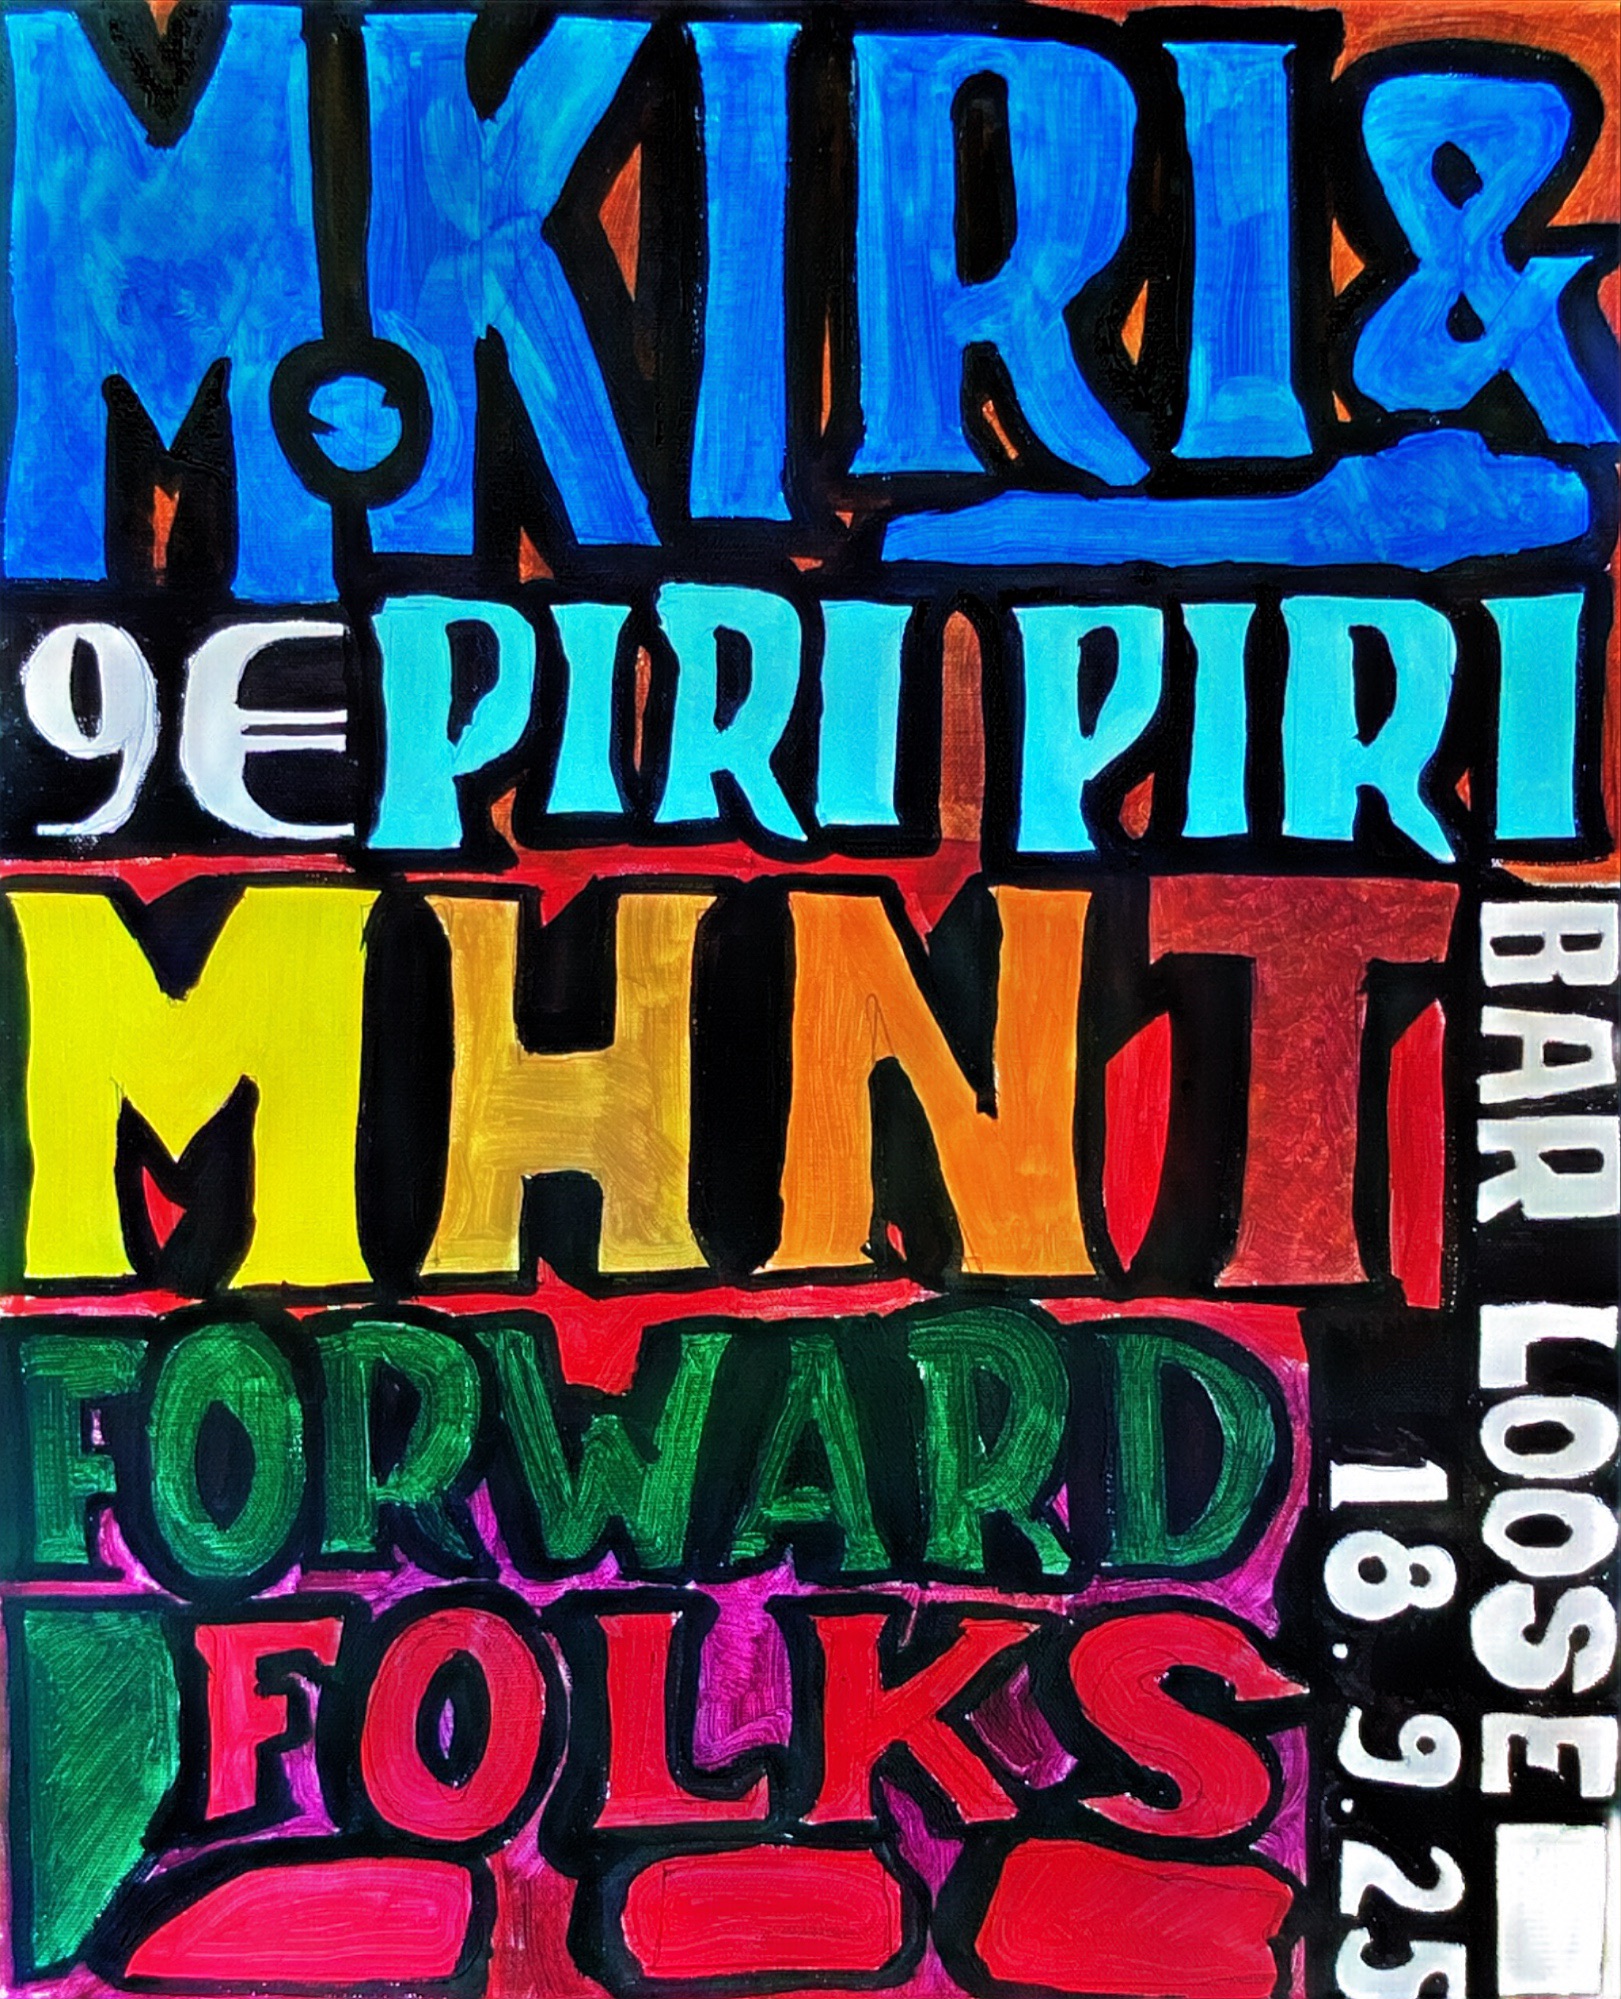 M.KIRI &
9€ PIRI PIRI
MHNT
FORWARD
FOLKS
BAR LOOSE
18.9.25